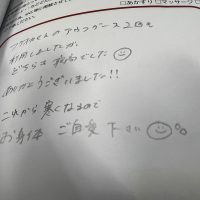 □あかすり □マッサージ
アカスリ&アウフグース2回も
利用しましたが
どちらも最高でした
ありがとうございました!!
これから寒くなるので
お身体 ご自愛下さい